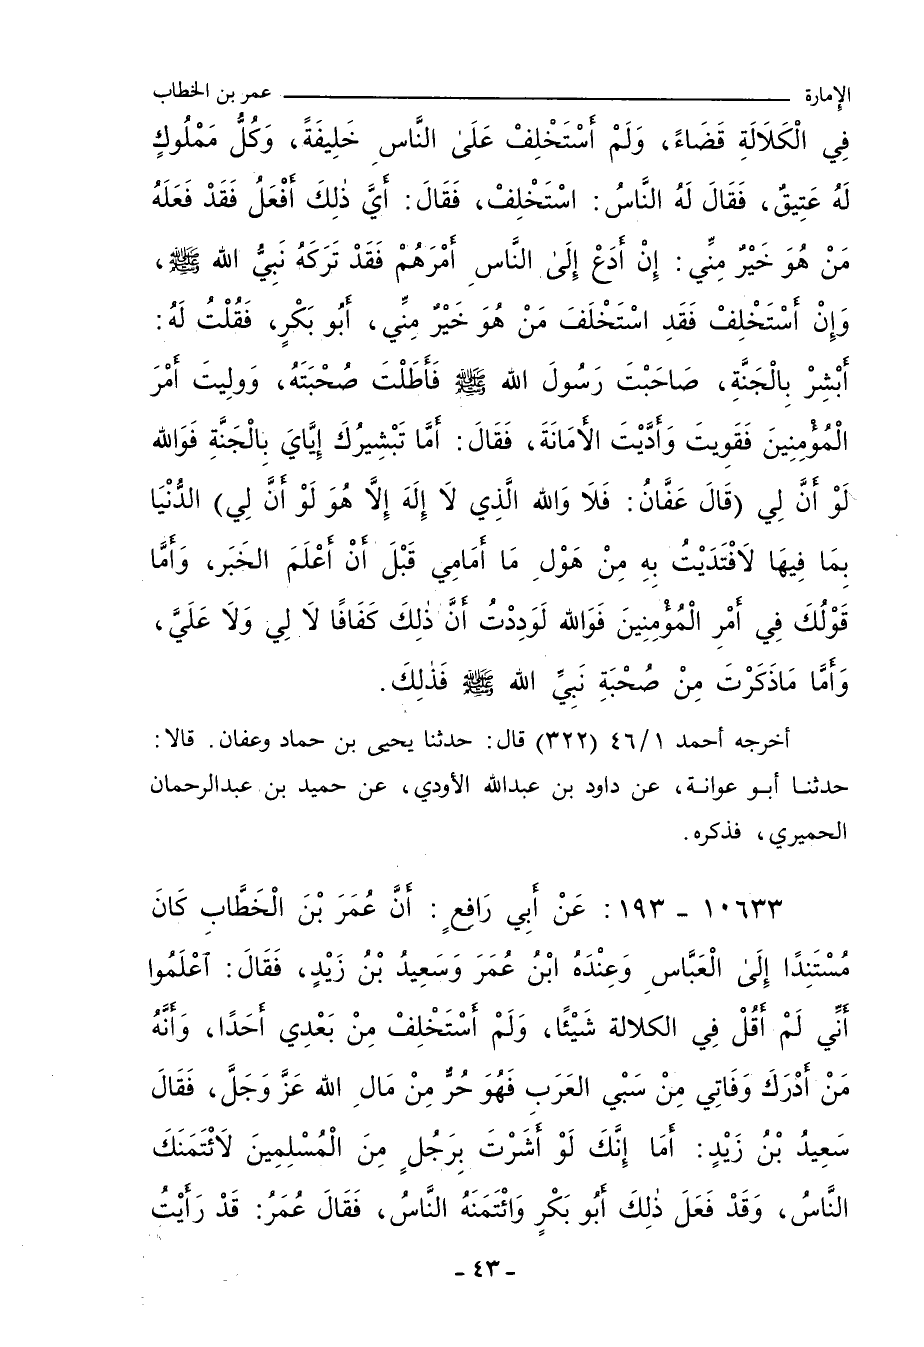 الإمارة ــــــــــــــــ عمر بن الخطاب
فِي الْكَلَالَةِ قَضَاءً، وَلَمْ أَسْتَخْلِفْ عَلَىٰ النَّاسِ خَلِيفَةً، وَكُلُّ مَمْلُوكٍ
لَهُ عَتِيقٌ، فَقَالَ لَهُ النَّاسُ: اسْتَخْلِفْ، فَقَالَ: أَيَّ ذٰلِكَ أَفْعَلُ فَقَدْ فَعَلَهُ
مَنْ هُوَ خَيْرٌ مِنِّي: إِنْ أَدَعْ إِلَىٰ النَّاسِ أَمْرَهُمْ فَقَدْ تَرَكَهُ نَبِيُّ الله ﷺ،
وَإِنْ أَسْتَخْلِفْ فَقَدِ اسْتَخْلَفَ مَنْ هُوَ خَيْرٌ مِنِّي، أَبُو بَكْرٍ، فَقُلْتُ لَهُ:
أَبْشِرْ بِالْجَنَّةِ، صَاحَبْتَ رَسُولَ الله ﷺ فَأَطَلْتَ صُحْبَتَهُ، وَوَلِيتَ أَمْرَ
الْمُؤْمِنِينَ فَقَوِيتَ وَأَدَّيْتَ الأَمَانَةَ، فَقَالَ: أَمَّا تَبْشِيرُكَ إِيَّايَ بِالْجَنَّةِ فَوَالله
لَوْ أَنَّ لِي (قَالَ عَفَّانُ: فَلَا وَالله الَّذِي لَا إِلَهَ إِلَّا هُوَ لَوْ أَنَّ لِي) الدُّنْيَا
بِمَا فِيهَا لَافْتَدَيْتُ بِهِ مِنْ هَوْلِ مَا أَمَامِي قَبْلَ أَنْ أَعْلَمَ الخَبَرَ، وَأَمَّا
قَوْلُكَ فِي أَمْرِ الْمُؤْمِنِينَ فَوَالله لَوَدِدْتُ أَنَّ ذٰلِكَ كَفَافًا لَا لِي وَلَا عَلَيَّ،
وَأَمَّا مَاذَكَرْتَ مِنْ صُحْبَةِ نَبِيِّ الله ﷺ فَذٰلِكَ.
أخرجه أحمد ٤٦/١ (٣٢٢) قال: حدثنا يحيى بن حماد وعفان. قالا:
حدثنا أبو عوانة، عن داود بن عبدالله الأودي، عن حميد بن عبدالرحمان
الحميري، فذكره.
١٠٦٣٣ - ١٩٣: عَنْ أَبِي رَافِعٍ: أَنَّ عُمَرَ بْنَ الْخَطَّابِ كَانَ
مُسْتَنِدًا إِلَىٰ الْعَبَّاسِ وَعِنْدَهُ ابْنُ عُمَرَ وَسَعِيدُ بْنُ زَيْدٍ، فَقَالَ: ٱعْلَمُوا
أَنِّي لَمْ أَقُلْ فِي الكلالة شَيْئًا، وَلَمْ أَسْتَخْلِفْ مِنْ بَعْدِي أَحَدًا، وَأَنَّهُ
مَنْ أَدْرَكَ وَفَاتِي مِنْ سَبْيِ العَرَبِ فَهُوَ حُرٌّ مِنْ مَالِ الله عَزَّ وَجَلَّ، فَقَالَ
سَعِيدُ بْنُ زَيْدٍ: أَمَا إِنَّكَ لَوْ أَشَرْتَ بِرَجُلٍ مِنَ الْمُسْلِمِينَ لَائْتَمَنَكَ
النَّاسُ، وَقَدْ فَعَلَ ذٰلِكَ أَبُو بَكْرٍ وَائْتَمَنَهُ النَّاسُ، فَقَالَ عُمَرُ: قَدْ رَأَيْتُ
- ٤٣ -